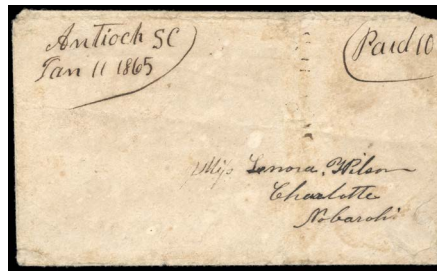 Antioch SC
Jan 11 1865
Paid 10
Miss Lenora Wilson
Charlotte
No Caroli